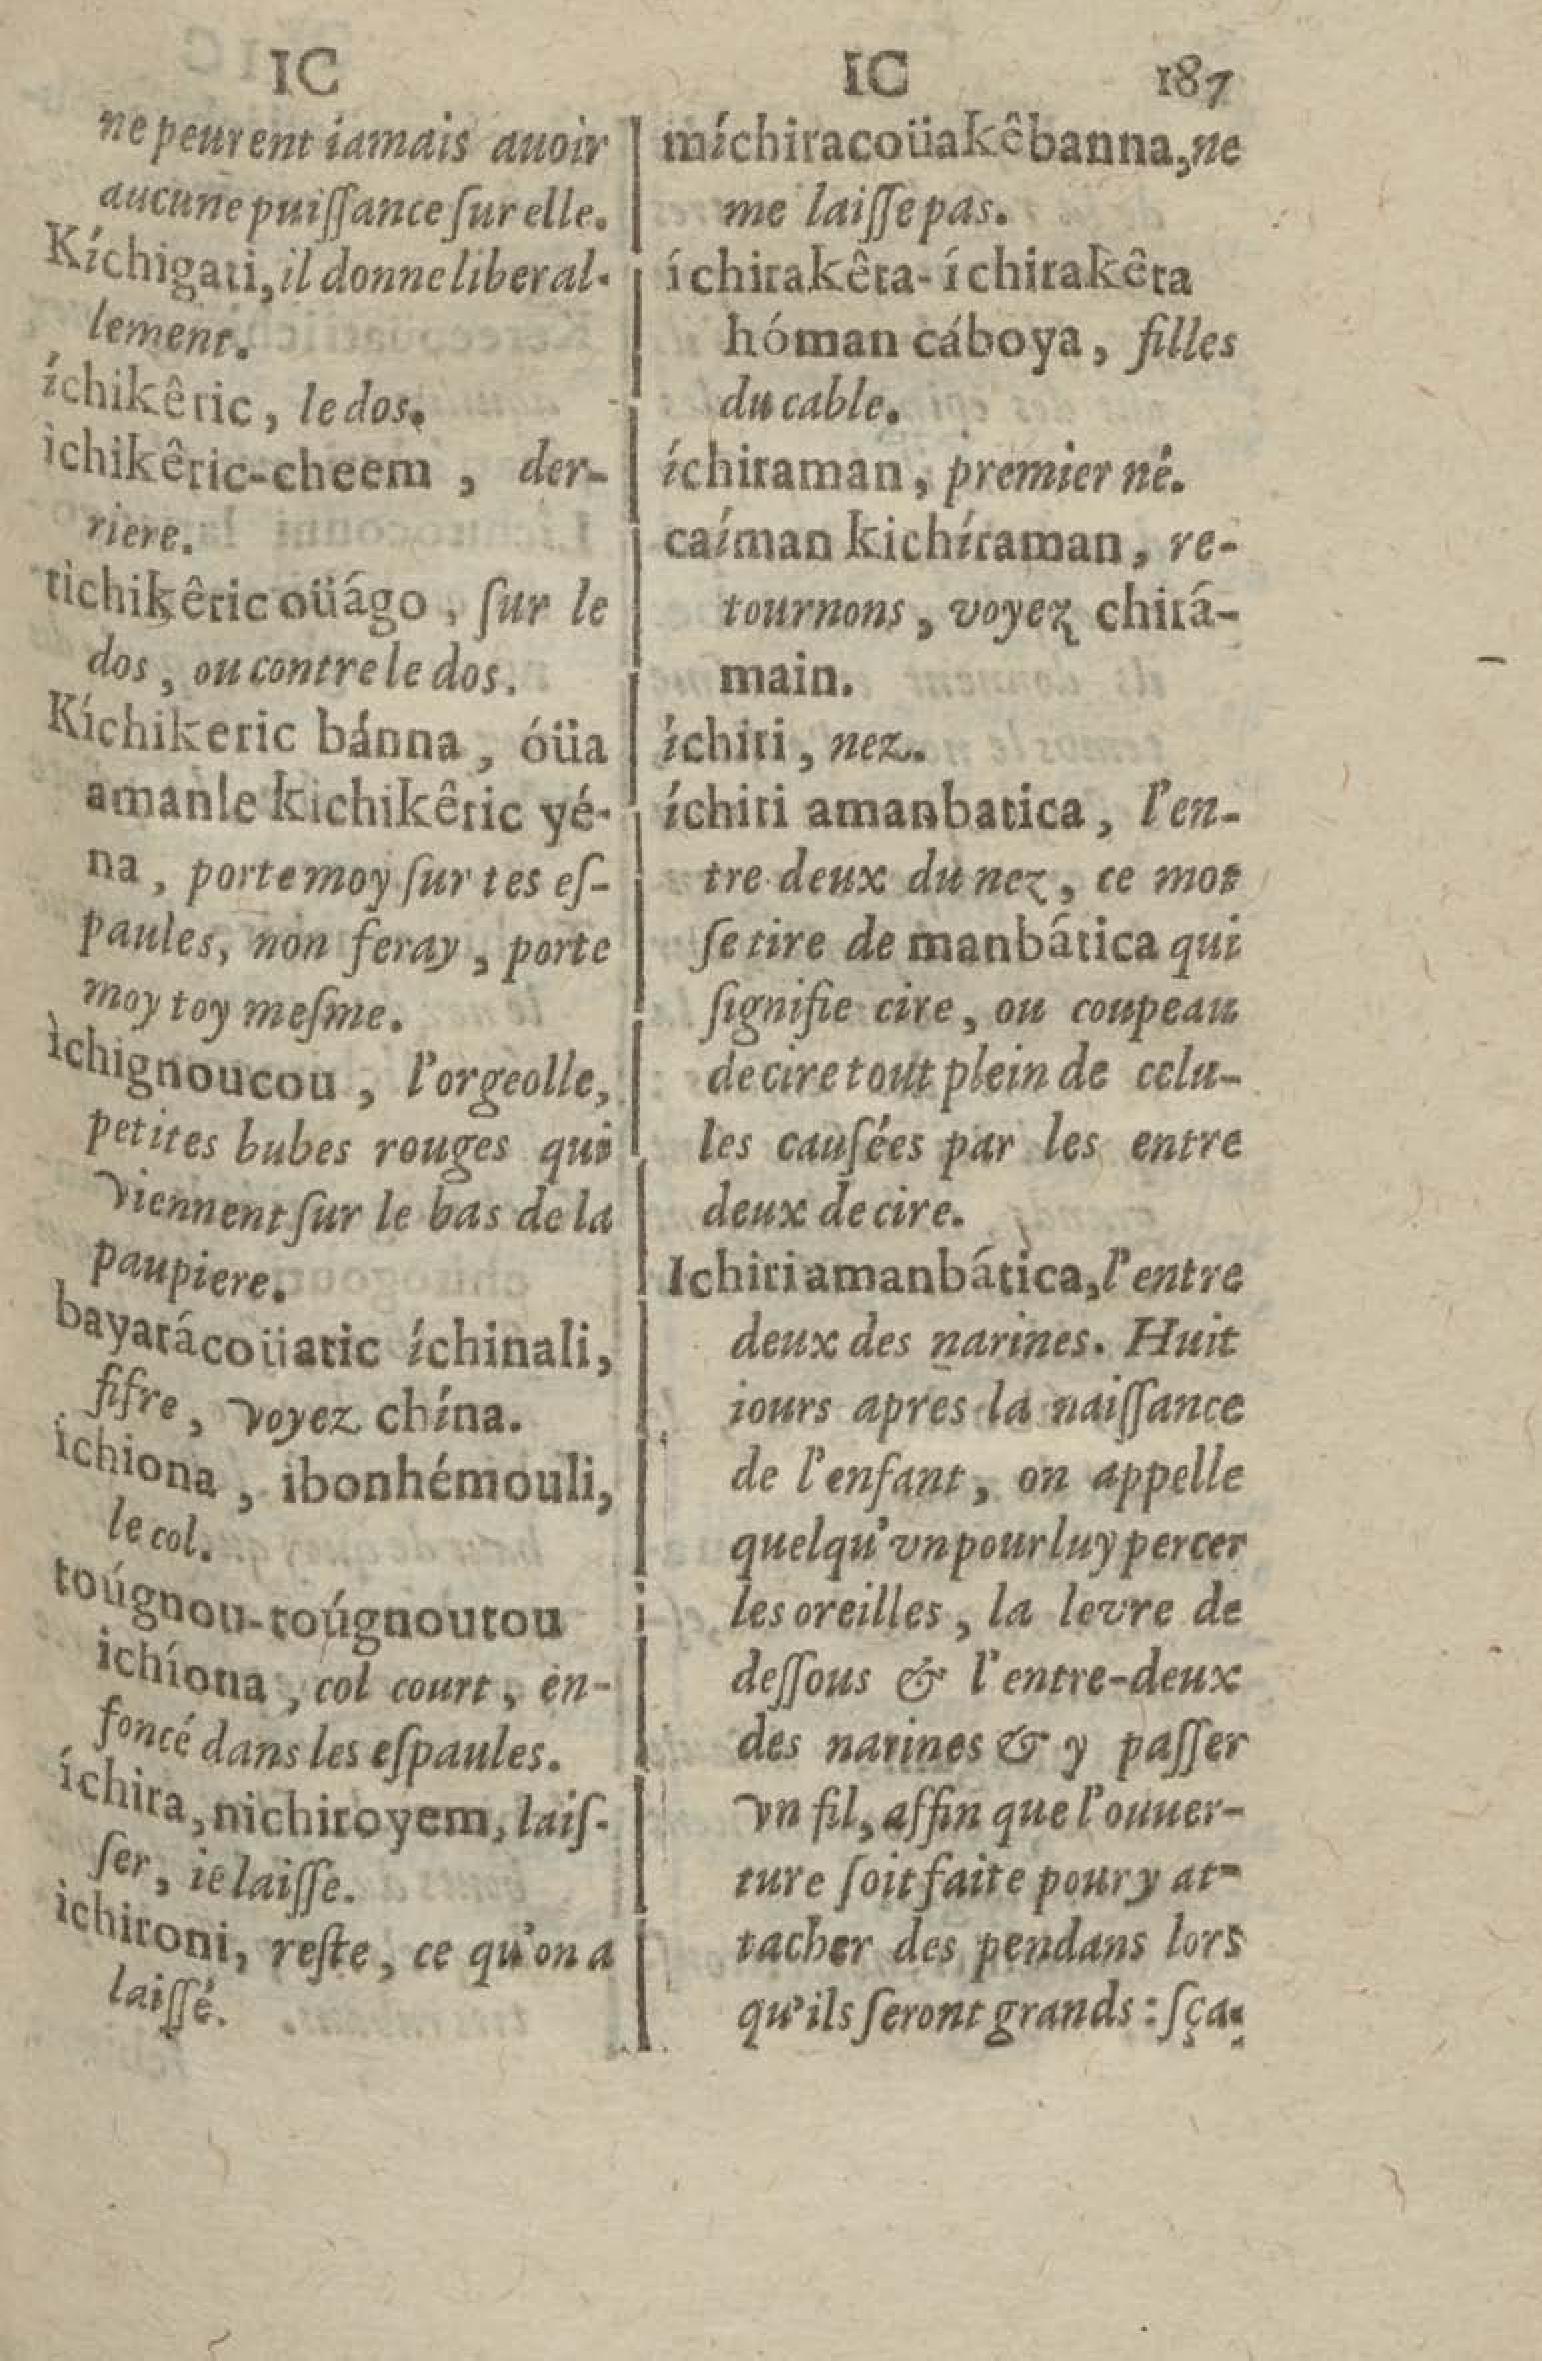 IC
ne peuuent iamais auoir
aucune puiſſance ſur elle.
Kíchigati, il donne liberal-
lement.
íchikêric, le dos.
ichikêric-cheem, der-
riere.
tichikêric oüágo, ſur le
dos, ou contre le dos.
Kíchikeric bánna, óüa
amanle kichikêric yé-
na, porte moy ſur tes eſ-
paules, non feray, porte
moy toy meſme.
ichignoucou, l'orgeolle,
petites bubes rouges qui
viennent ſur le bas de la
paupiere.
bayatácoüatic íchinali,
fifre, voyez chína.
ichiona, ibonhémouli,
le col.
toúgnou-toúgnoutou
ichíona, col court, en-
foncé dans les eſpaules.
íchira, nichiroyem, laiſ-
ſer, ie laiſſe.
ichironi, reſte, ce qu'on a
laiſſé.
IC 187
míchiracoüakêbanna, ne
me laiſſe pas.
íchirakêta-íchirakêta
hóman cáboya, filles
du cable.
íchiraman, premier né.
caíman kichíraman, re-
tournons, voyez chirá-
main.
íchiri, nez.
íchiri amanbatica, l'en-
tre deux du nez, ce mot
ſe tire de manbática qui
ſignifie cire, ou coupeau
de cire tout plein de celu-
les cauſées par les entre
deux de cire.
Ichiri amanbática, l'entre
deux des narines. Huit
iours apres la naiſſance
de l'enfant, on appelle
quelqu'vn pour luy percer
les oreilles, la levre de
deſſous & l'entre-deux
des narines & y paſſer
vn fil, affin que l'ouuer-
ture ſoit faite pour y at-
tacher des pendans lors
qu'ils ſeront grands : ſça-